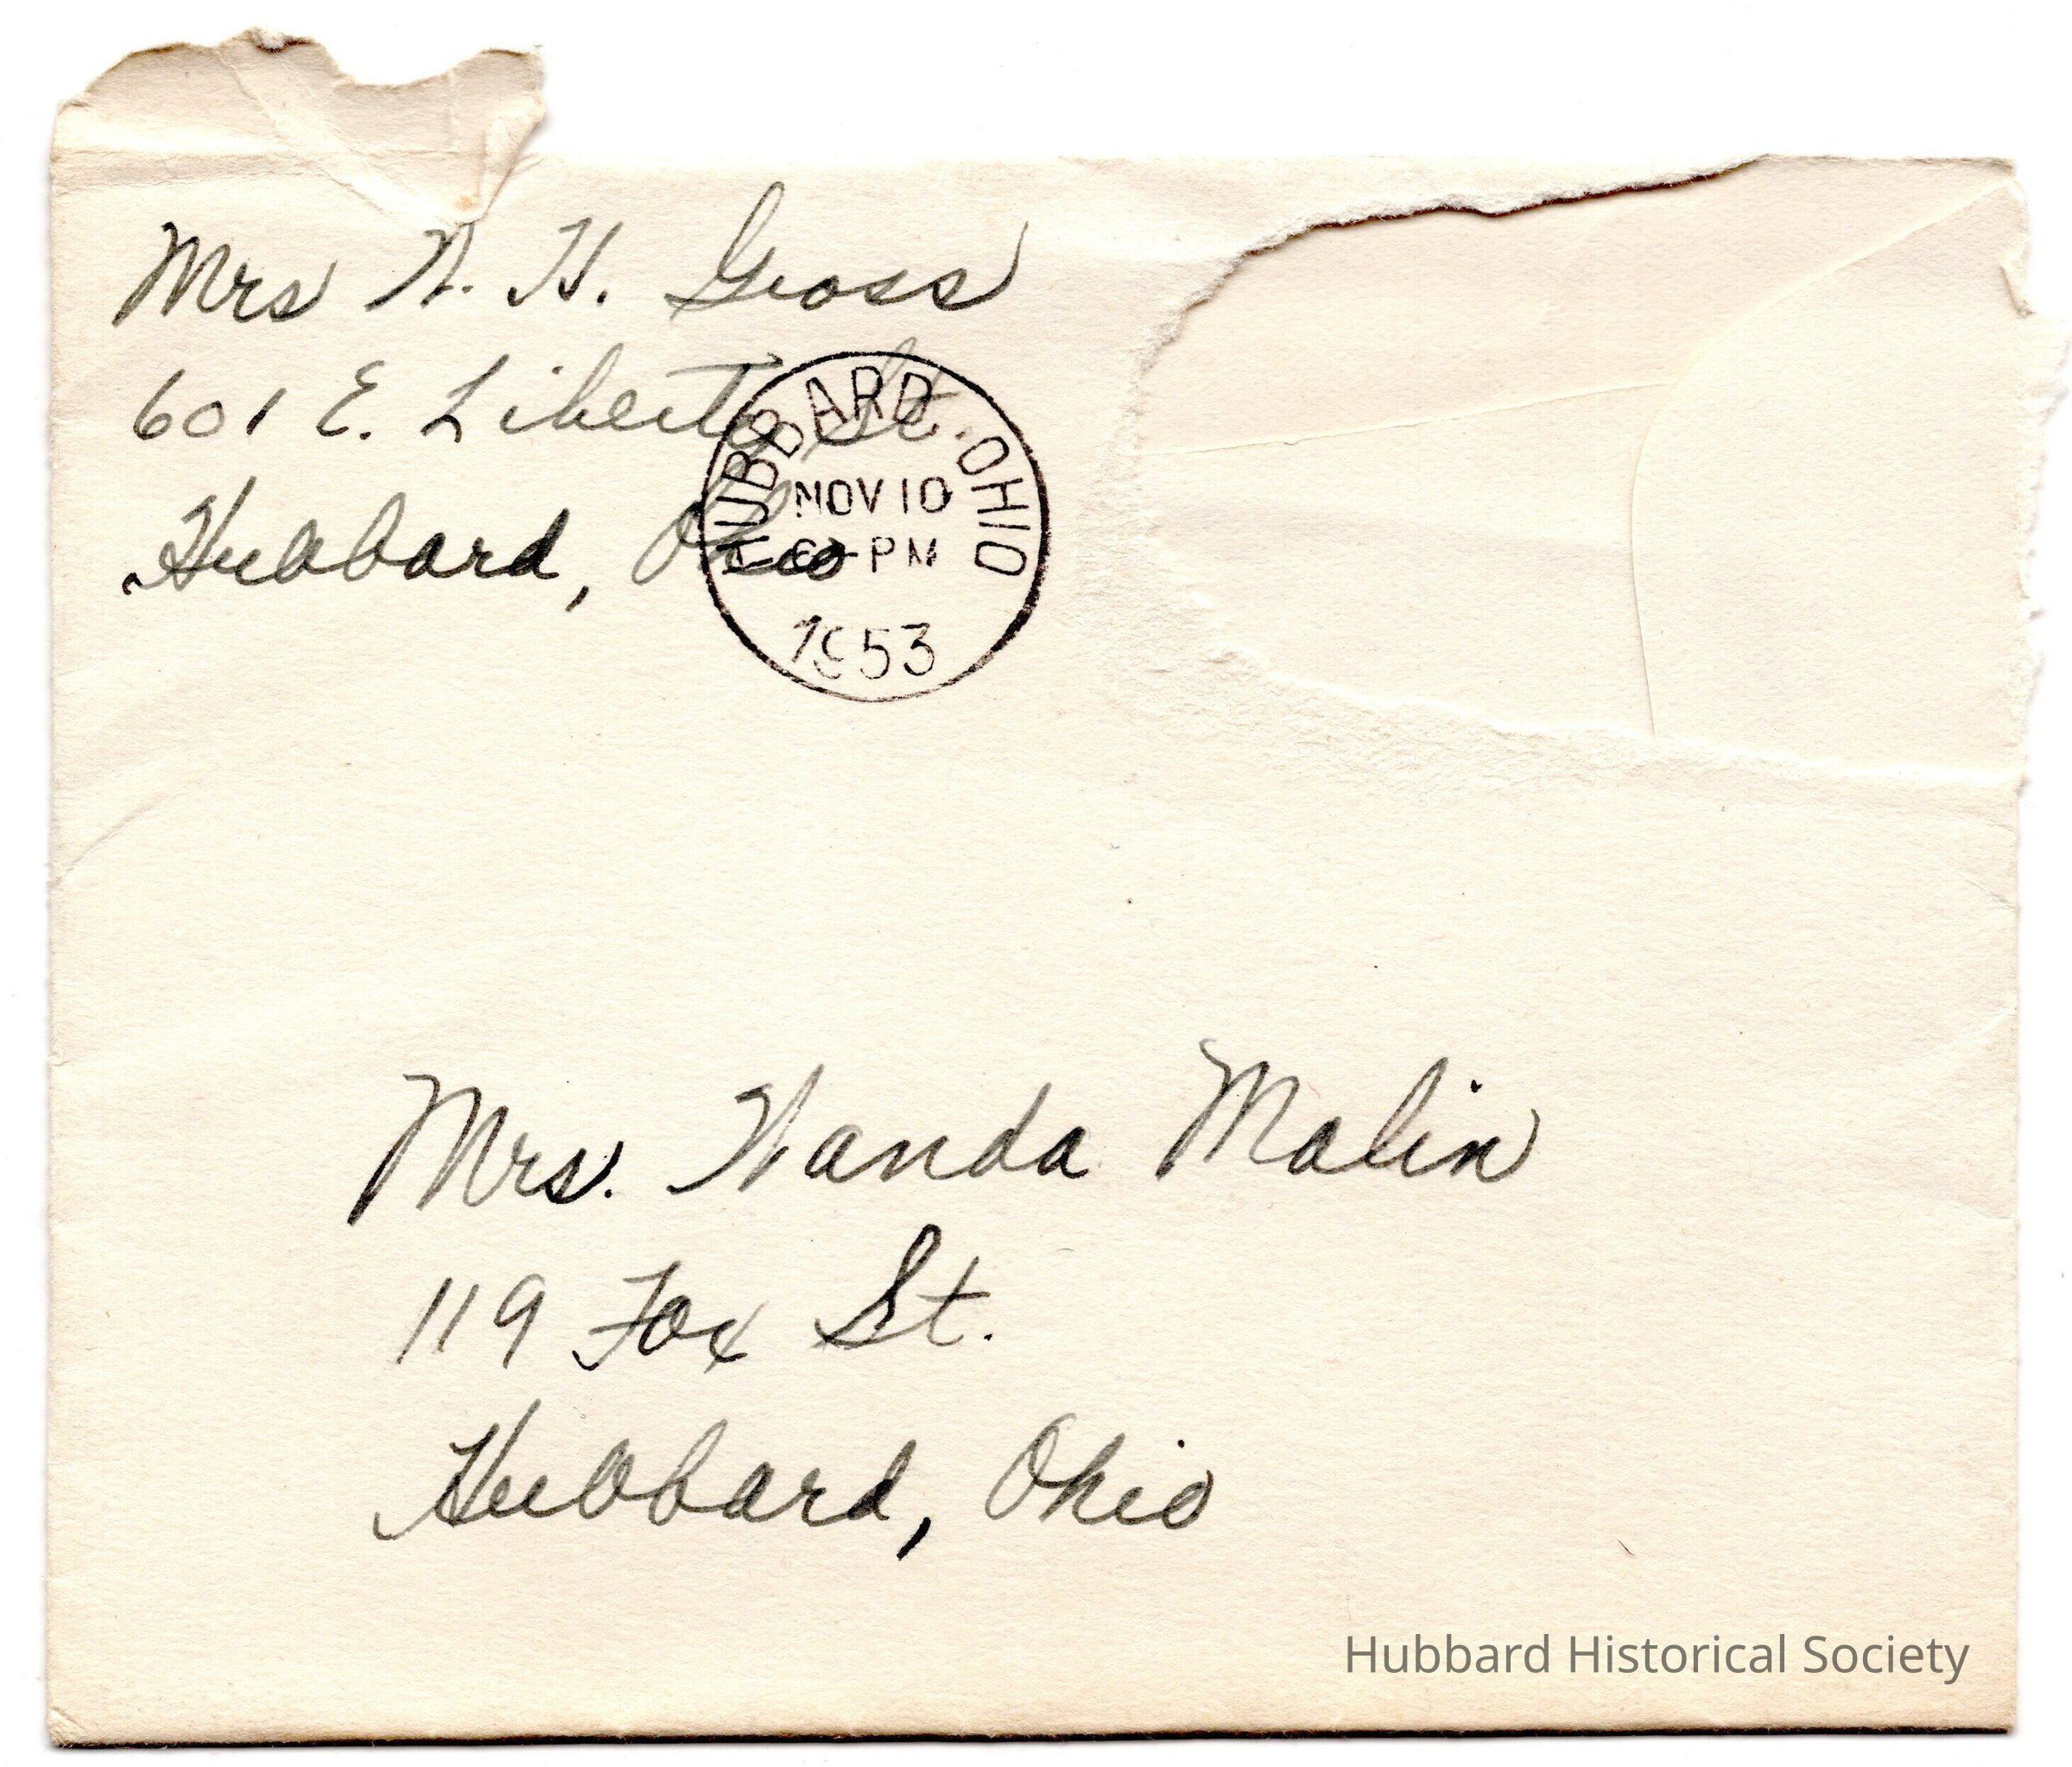 Mrs N. H. Gross
601 E. Liberty St.
Hubbard, Ohio
HUBBARD. OHIO
NOV 10
6-PM
1953
Mrs. Wanda Malin
119 Fox St.
Hubbard, Ohio
Hubbard Historical Society